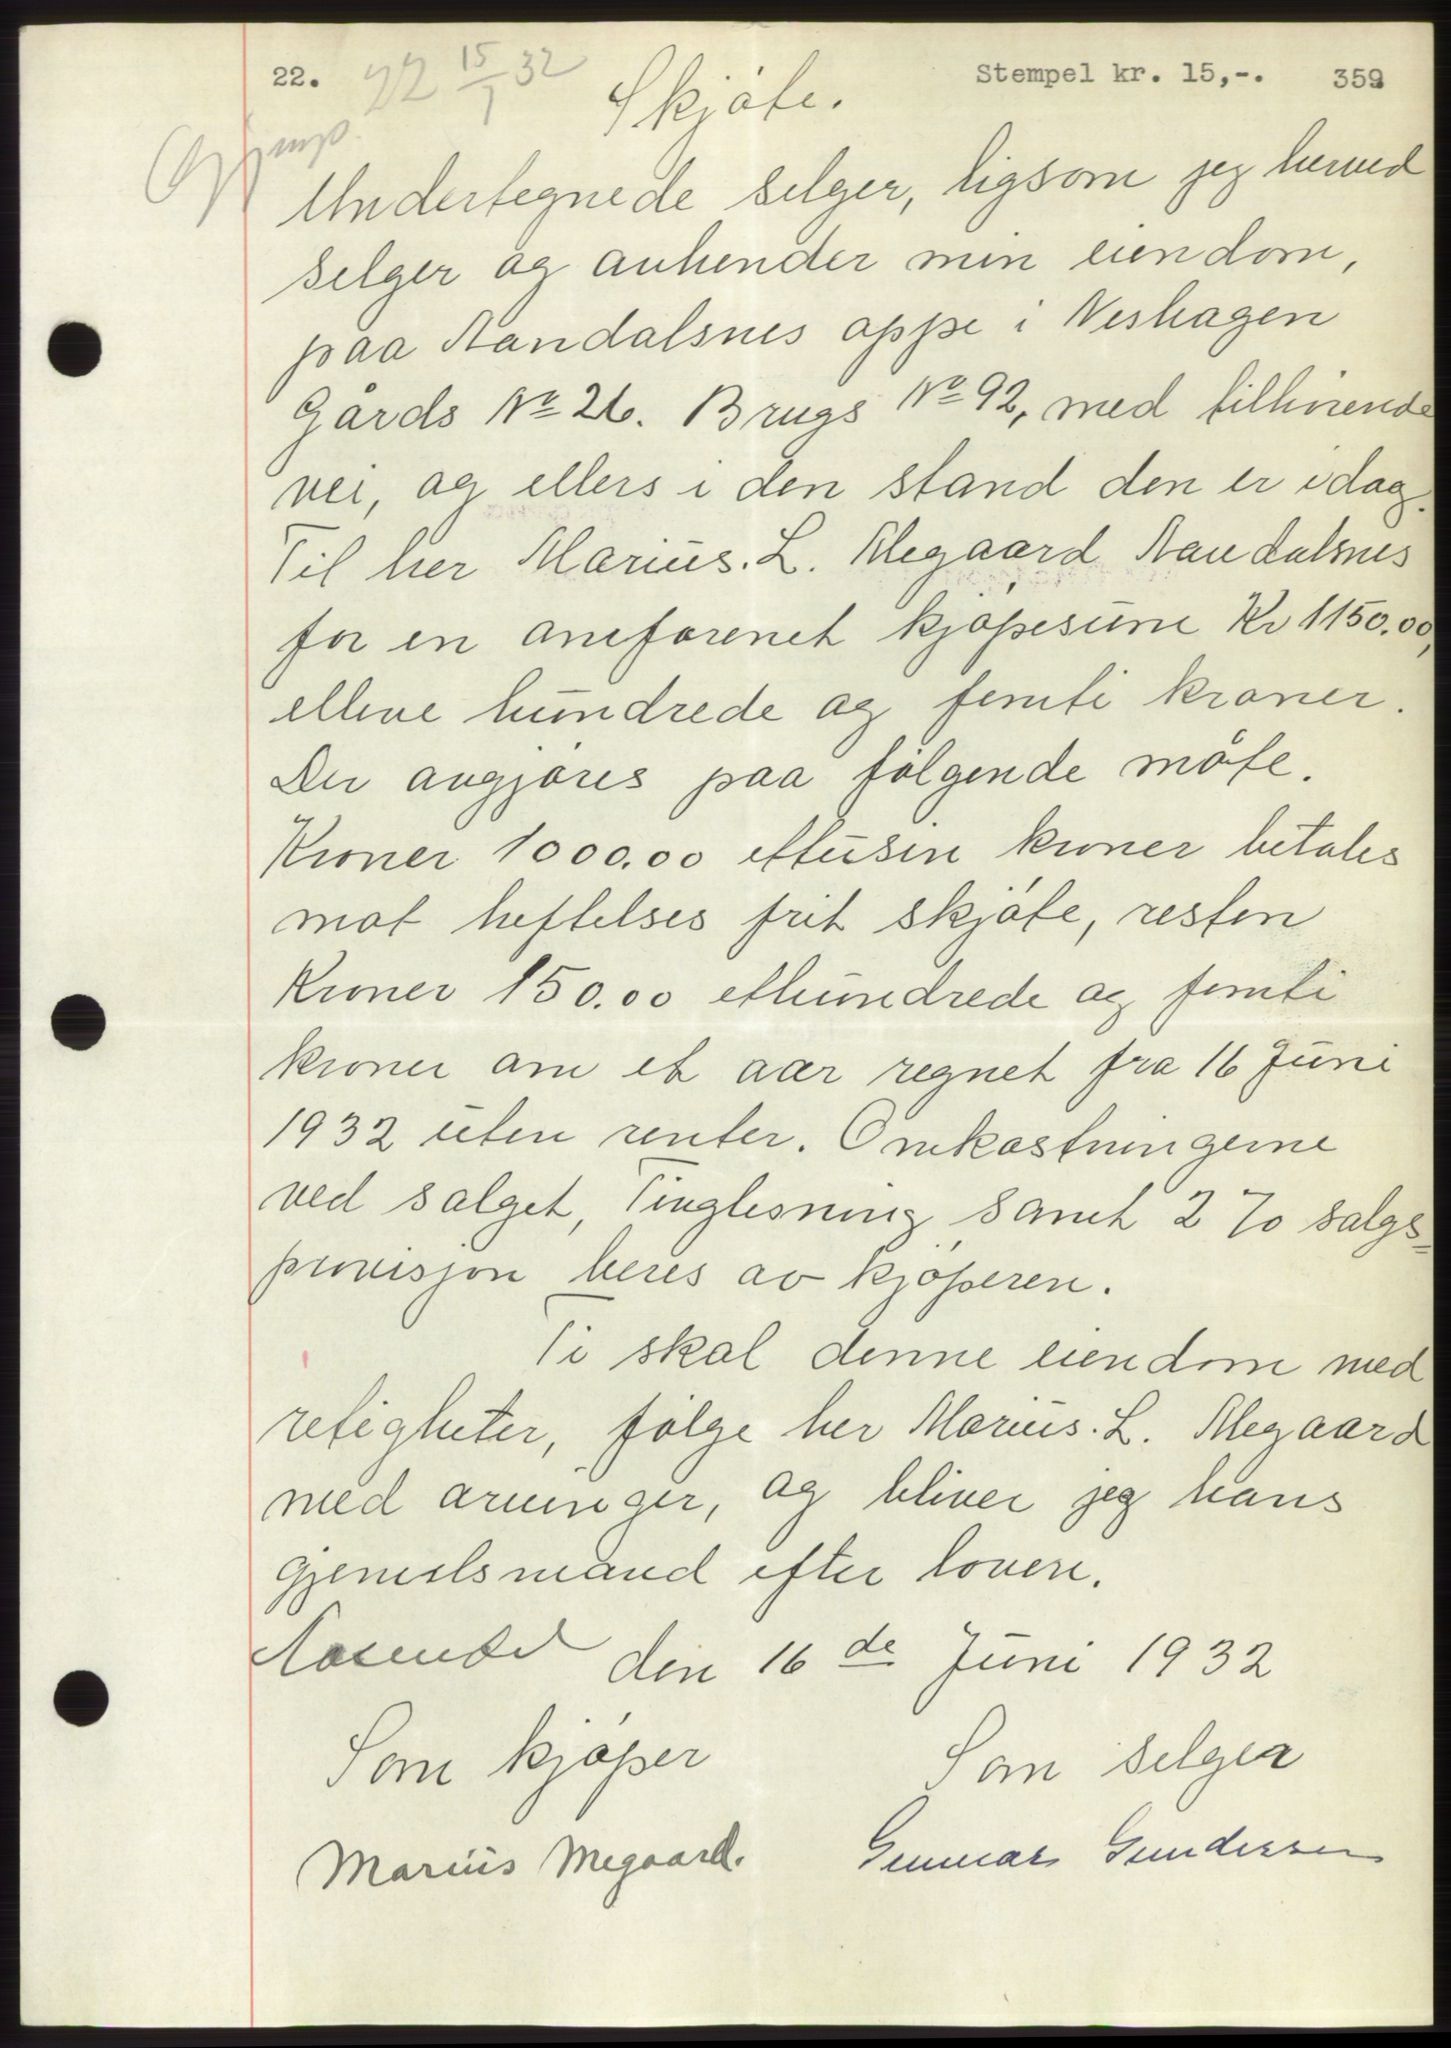 22. 22 15/7 32 Stempel kr. 15,-. 359
Skjøte.
Undertegnede selger, ligsom jeg herved
selger og avhender min eiendom,
paa Aandalsnes oppe i Neshagen
Gårds No 26. Brugs No 92, med tilhörende
vei, og ellers i den stand den er idag.
Til her Marius. L. Megaard Aandalsnes
for en omforenet kjøpesum Kr 1150.00,
elleve hundrede og femti kroner.
Der avgjøres paa følgende måte.
Kroner 1000.00 ettusin kroner betales
mot heftelses frit skjøte, resten
Kroner 150.00 ethundrede og femti
kroner om et aar regnet fra 16 Juni
1932 uten renter. Omkostningerne
ved salget, Tinglesning samt 2 % salgs=
provisjon beres av kjøperen.
Ti skal denne eiendom med
retigheter, følge her Marius. L. Megaard
med arvinger, og bliver jeg hans
hjemelsmand efter loven.
den 16 de Juni 1932
Som kjøper Som selger
Marius Megaard. Gunnar Gundersen